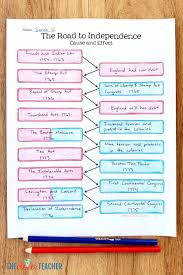 Name: Sarah
The Road to Independence
Cause and Effect
French and Indian War
1754-1763
England had war debt
The Stamp Act
1765
Sons of Liberty & Stamp Act Congress
Repeal of Stamp Act
England still has debt
Townshend Act
1767
Increased tension and protest in the colonies
The Boston Massacre
1770
More tension and protests in the colonies
Tea Act
1773
Boston Tea Party
Intolerable Acts
1774
First Continental Congress
1774
Lexington and Concord
1775
Second Continental Congress
1775
Declaration of Independence
1776
THE
TEACHER